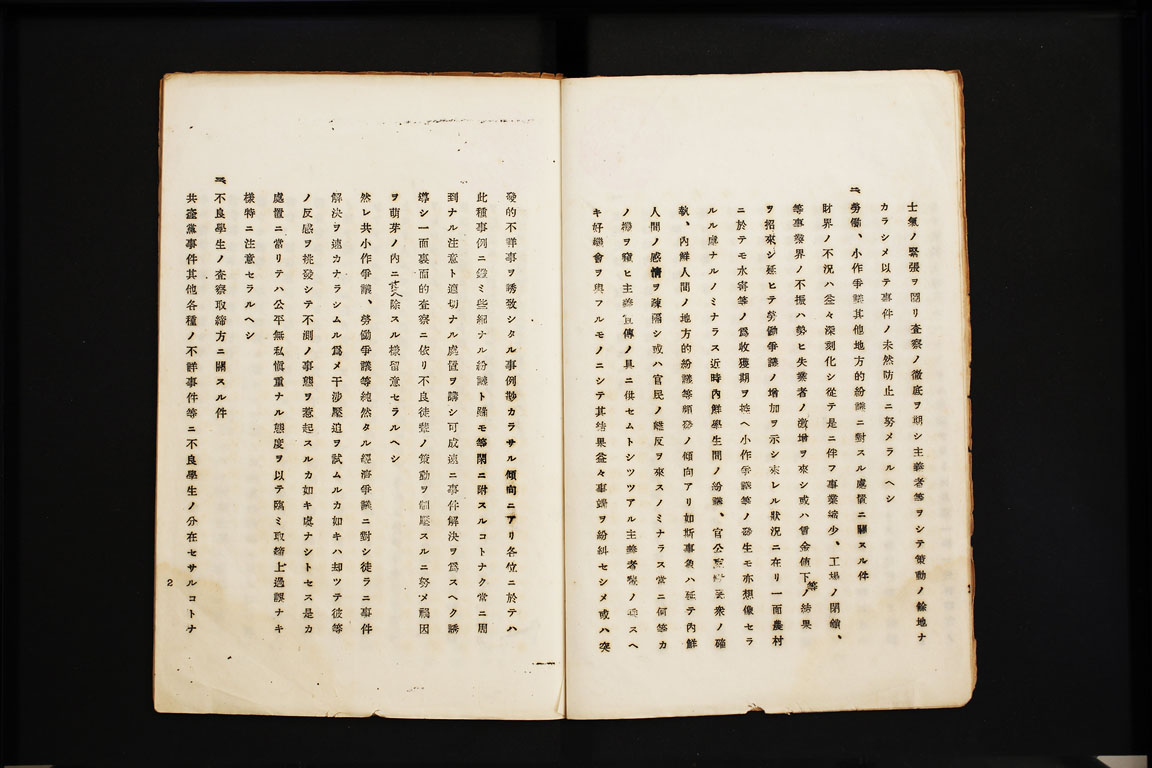 士氣ノ緊張ヲ圖リ査察ノ徹底ヲ期シ主義者等ヲシテ策動ノ餘地ナ
カラシメ以テ事件ノ未然防止ニ努メラルヘシ
二、勞働、小作爭議其他地方的紛議ニ對スル處置ニ關スル件
財界ノ不況ハ益々深刻化シ從テ是ニ伴フ事業縮少、工場ノ閉鎖、
等事業界ノ不振ハ勢ヒ失業者ノ激增ヲ來シ或ハ賃金値下等ノ結果
ヲ招來シ延ヒテ勞働爭議ノ增加ヲ示シ來レル狀況ニ在リ一面農村
ニ於テモ水害等ノ爲收獲期ヲ控ヘ小作爭議等ノ發生モ亦想像セラ
ルル處ナルノミナラス近時內鮮學生間ノ紛議、官公吏對民衆ノ確
執、內鮮人間ノ地方的紛議等頻發ノ傾向アリ如斯事象ハ延テ內鮮
人間ノ感情ヲ疎隔シ或ハ官民ノ離反ヲ來スノミナラス常ニ何等カ
ノ機ヲ窺ヒ主義宣傳ノ具ニ供セムトシツツアル主義者輩ノ乘スヘ
キ好機會ヲ與フルモノニシテ其結果益々事端ヲ紛糾セシメ或ハ突
發的不祥事ヲ誘致シタル事例尠カラサル傾向ニアリ各位ニ於テハ
此種事例ニ鑑ミ些細ナル紛議ト雖モ等閑ニ附スルコトナク常ニ周
到ナル注意ト適切ナル處置ヲ講シ可成速ニ事件解決ヲ爲スヘク誘
導シ一面裏面的査察ニ依リ不良徒輩ノ策動ヲ制壓スルニ努メ禍因
ヲ萌芽ノ內ニ芟除スル樣留意セラルヘシ
然レ共小作爭議、勞働爭議等純然タル經濟爭議ニ對シ徒ラニ事件
解決ヲ速カナラシムル爲メ干涉壓迫ヲ試ムルカ如キハ却ツテ彼等
ノ反感ヲ挑發シテ不測ノ事態ヲ惹起スルカ如キ處ナシトセス是カ
處置ニ當リテハ公平無私愼重ナル態度ヲ以テ臨ミ取締上過誤ナキ
樣特ニ注意セラルヘシ
三、不良學生ノ査察取締方ニ關スル件
共產黨事件其他各種ノ不祥事件等ニ不良學生ノ分在セサルコトナ
2